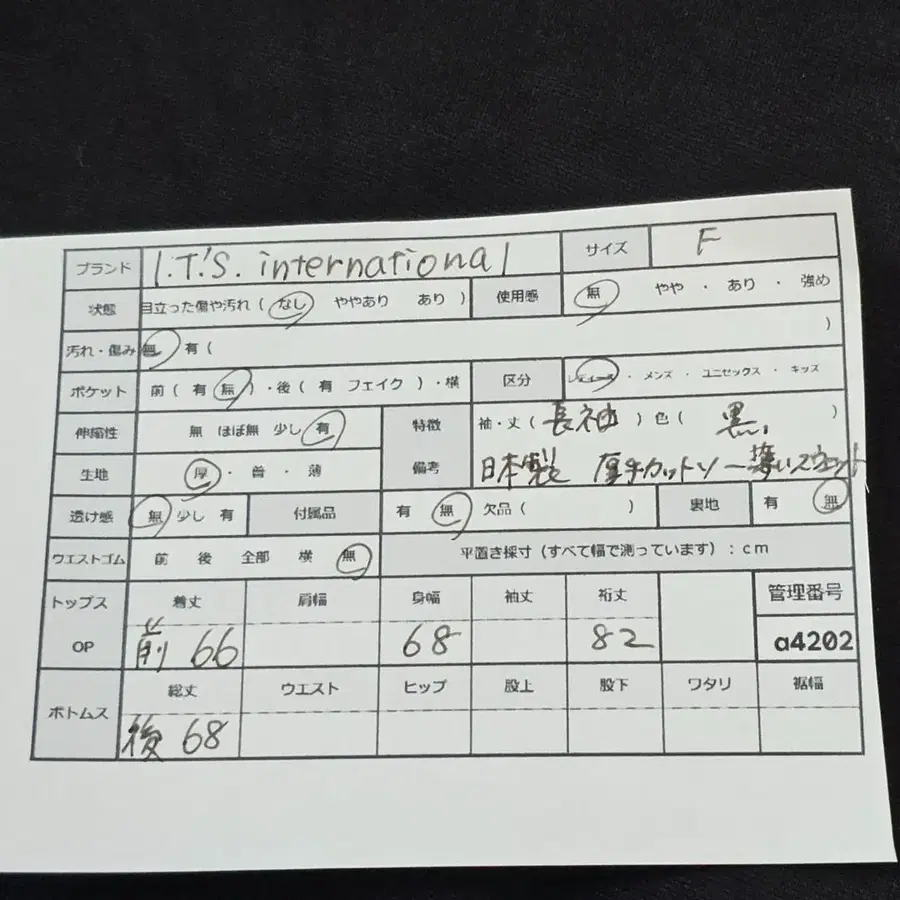 ブランド I.T.'S. international サイズ F
状態 目立った傷や汚れ ( なし ややあり あり ) 使用感 無 やや ・ あり ・ 強め
汚れ・傷み 無 有 ( )
ポケット 前 ( 有 無 ) ・後 ( 有 フェイク ) ・横 区分 レディース ・ メンズ ・ ユニセックス ・ キッズ
伸縮性 無 ほぼ無 少し 有 特徴 袖・丈 ( 長袖 ) 色 ( 黒, )
生地 厚 ・ 普 ・ 薄 備考 日本製 厚手カットソー薄いスウェット
透け感 無 少し 有 付属品 有 無 欠品 ( ) 裏地 有 無
ウエストゴム 前 後 全部 横 無 平置き採寸 (すべて幅で測っています) : cm
トップス 着丈 肩幅 身幅 袖丈 裄丈 管理番号
OP 前 66 68 82 a4202
ボトムス 総丈 ウエスト ヒップ 股上 股下 ワタリ 裾幅
後 68